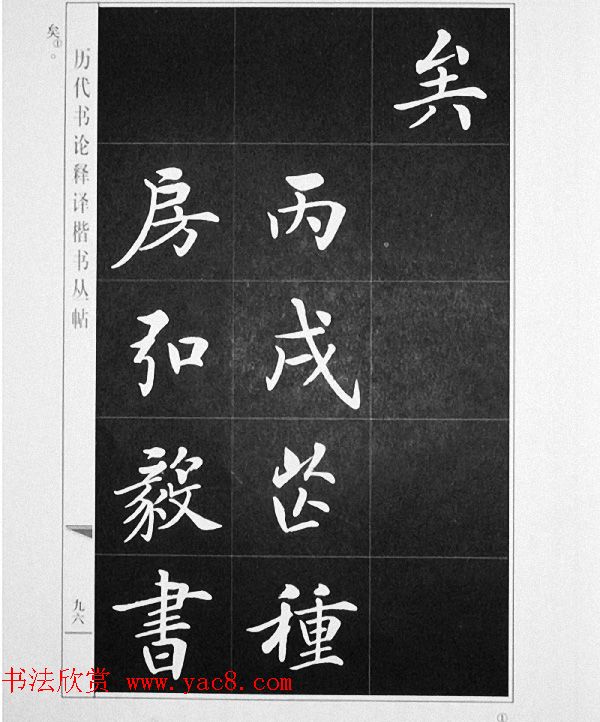 矣
丙戌芒種
房弘毅書
历代书论释译楷书丛帖
九六
矣①。
①
书法欣赏 www.yac8.com